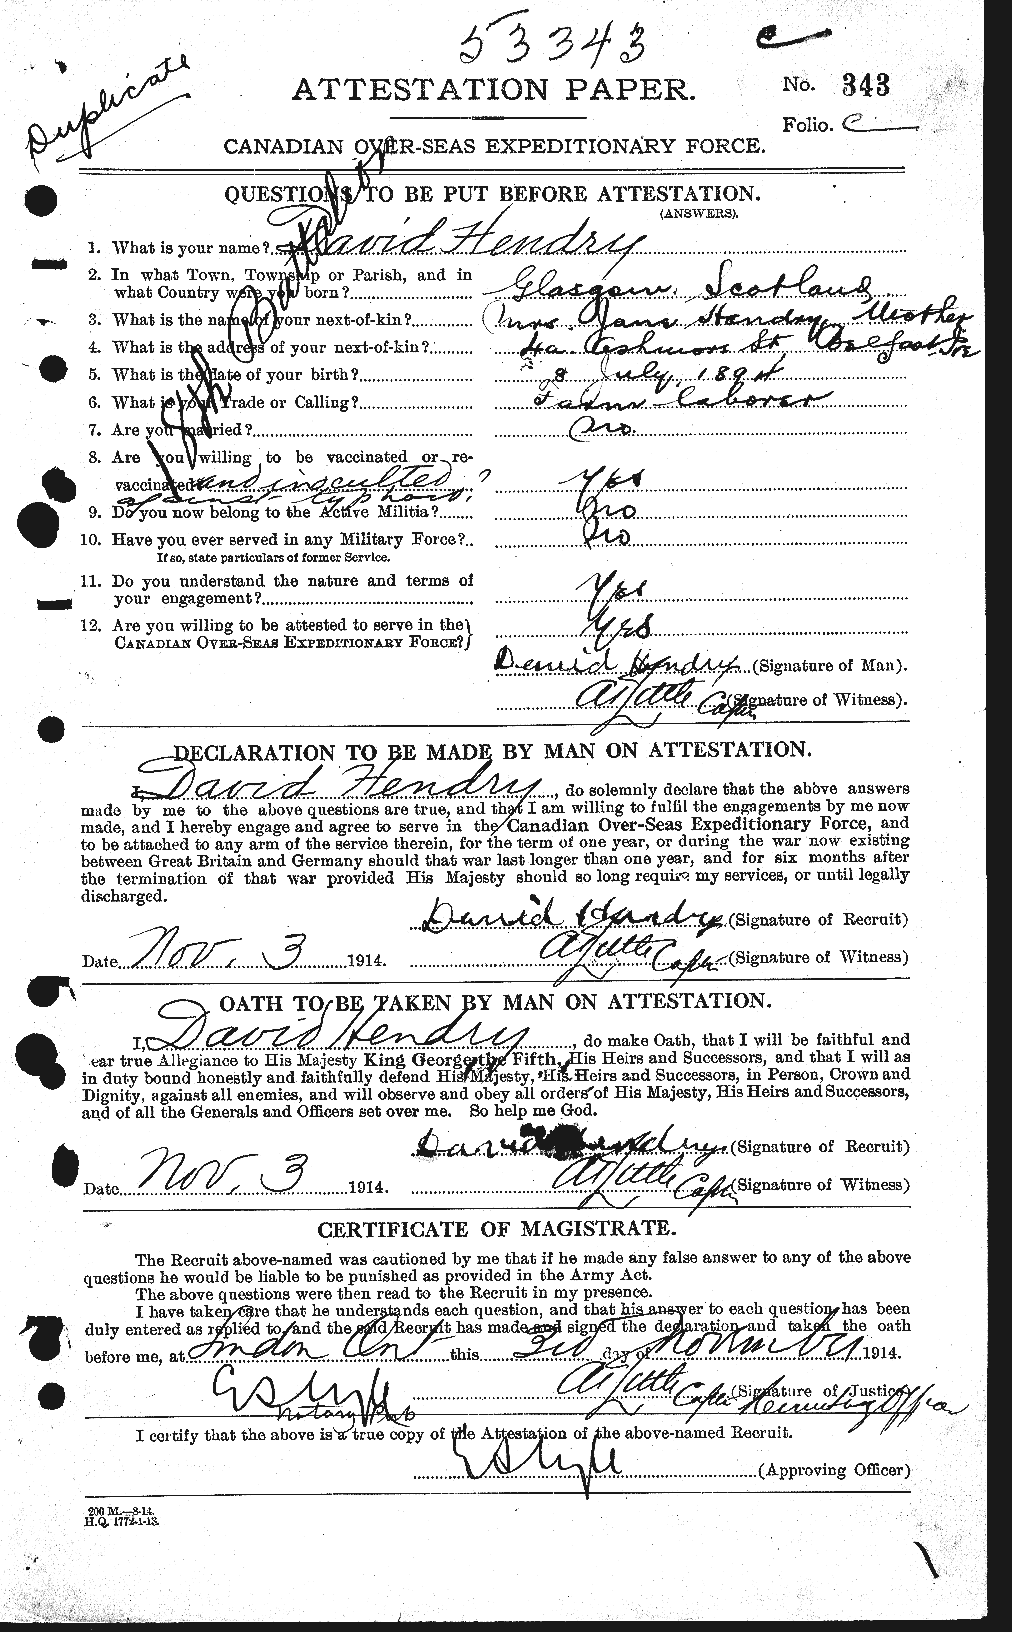 53343
C
Duplicate
ATTESTATION PAPER.
No. 343
Folio. C
CANADIAN OVER-SEAS EXPEDITIONARY FORCE.
18th Battalion
QUESTIONS TO BE PUT BEFORE ATTESTATION.
(ANSWERS).
1. What is your name? David Hendry
2. In what Town, Township or Parish, and in
what Country were you born? Glasgow, Scotland
3. What is the name of your next-of-kin? Mrs. Jane Hendry, Mother
4. What is the address of your next-of-kin? 4a Ashmore St, Belfast, Ire
5. What is the date of your birth? 8 July, 1894
6. What is your Trade or Calling? Farm laborer
7. Are you married? No.
8. Are you willing to be vaccinated or re-
vaccinated and inoculted ? Yes
against typhoid?
9. Do you now belong to the Active Militia? No
10. Have you ever served in any Military Force? No
If so, state particulars of former Service.
11. Do you understand the nature and terms of
your engagement? Yes
12. Are you willing to be attested to serve in the
CANADIAN OVER-SEAS EXPEDITIONARY FORCE? Yes
David Hendry (Signature of Man).
Capt. (Signature of Witness).
DECLARATION TO BE MADE BY MAN ON ATTESTATION.
I, David Hendry, do solemnly declare that the above answers
made by me to the above questions are true, and that I am willing to fulfil the engagements by me now
made, and I hereby engage and agree to serve in the Canadian Over-Seas Expeditionary Force, and
to be attached to any arm of the service therein, for the term of one year, or during the war now existing
between Great Britain and Germany should that war last longer than one year, and for six months after
the termination of that war provided His Majesty should so long require my services, or until legally
discharged.
David Hendry (Signature of Recruit)
Date Nov. 3 1914. Capt. (Signature of Witness)
OATH TO BE TAKEN BY MAN ON ATTESTATION.
I, David Hendry, do make Oath, that I will be faithful and
ear true Allegiance to His Majesty King George the Fifth, His Heirs and Successors, and that I will as
in duty bound honestly and faithfully defend His Majesty, His Heirs and Successors, in Person, Crown and
Dignity, against all enemies, and will observe and obey all orders of His Majesty, His Heirs and Successors,
and of all the Generals and Officers set over me. So help me God.
David Hendry (Signature of Recruit)
Date Nov. 3 1914. Capt. (Signature of Witness)
CERTIFICATE OF MAGISTRATE.
The Recruit above-named was cautioned by me that if he made any false answer to any of the above
questions he would be liable to be punished as provided in the Army Act.
The above questions were then read to the Recruit in my presence.
I have taken care that he understands each question, and that his answer to each question has been
duly entered as replied to, and the said Recruit has made and signed the declaration and taken the oath
before me, at London Ont this 3rd day of November 1914.
Capt. Recruiting Officer (Signature of Justice)
Notary Pub
I certify that the above is a true copy of the Attestation of the above-named Recruit.
(Approving Officer)
200 M.—8-14.
H.Q. 1772-1-13.